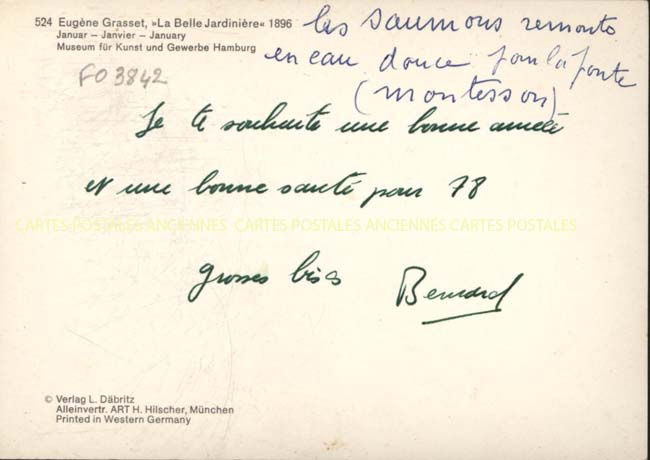 524 Eugène Grasset, »La Belle Jardinière« 1896
Januar – Janvier – January
Museum für Kunst und Gewerbe Hamburg
les saumons remonte
en eau douce pour la ponte
(montesson)
FO 3842
Je te souhaite une bonne année
et une bonne santé pour 78
CARTES POSTALES ANCIENNES CARTES POSTALES ANCIENNES CARTES POSTALES
grosses bises Bernard
© Verlag L. Däbritz
Alleinvertr. ART H. Hilscher, München
Printed in Western Germany